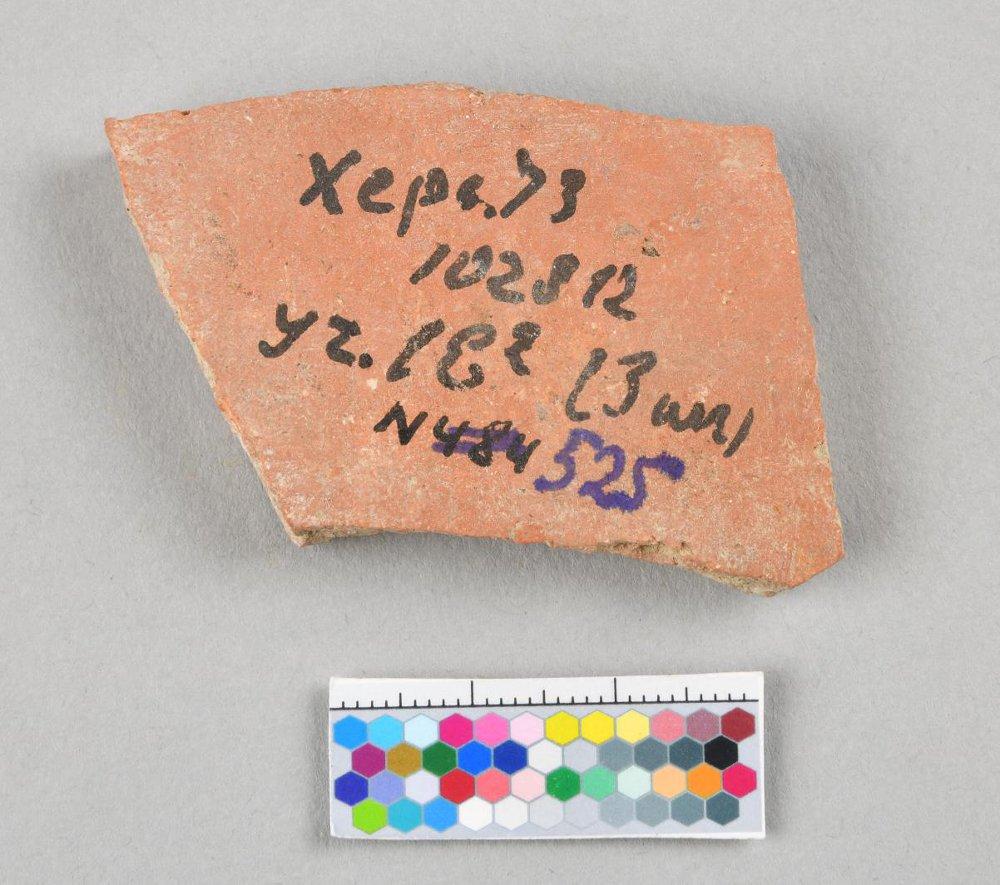 Хер. 73
102812
уг. (3 шт)
N 484 525